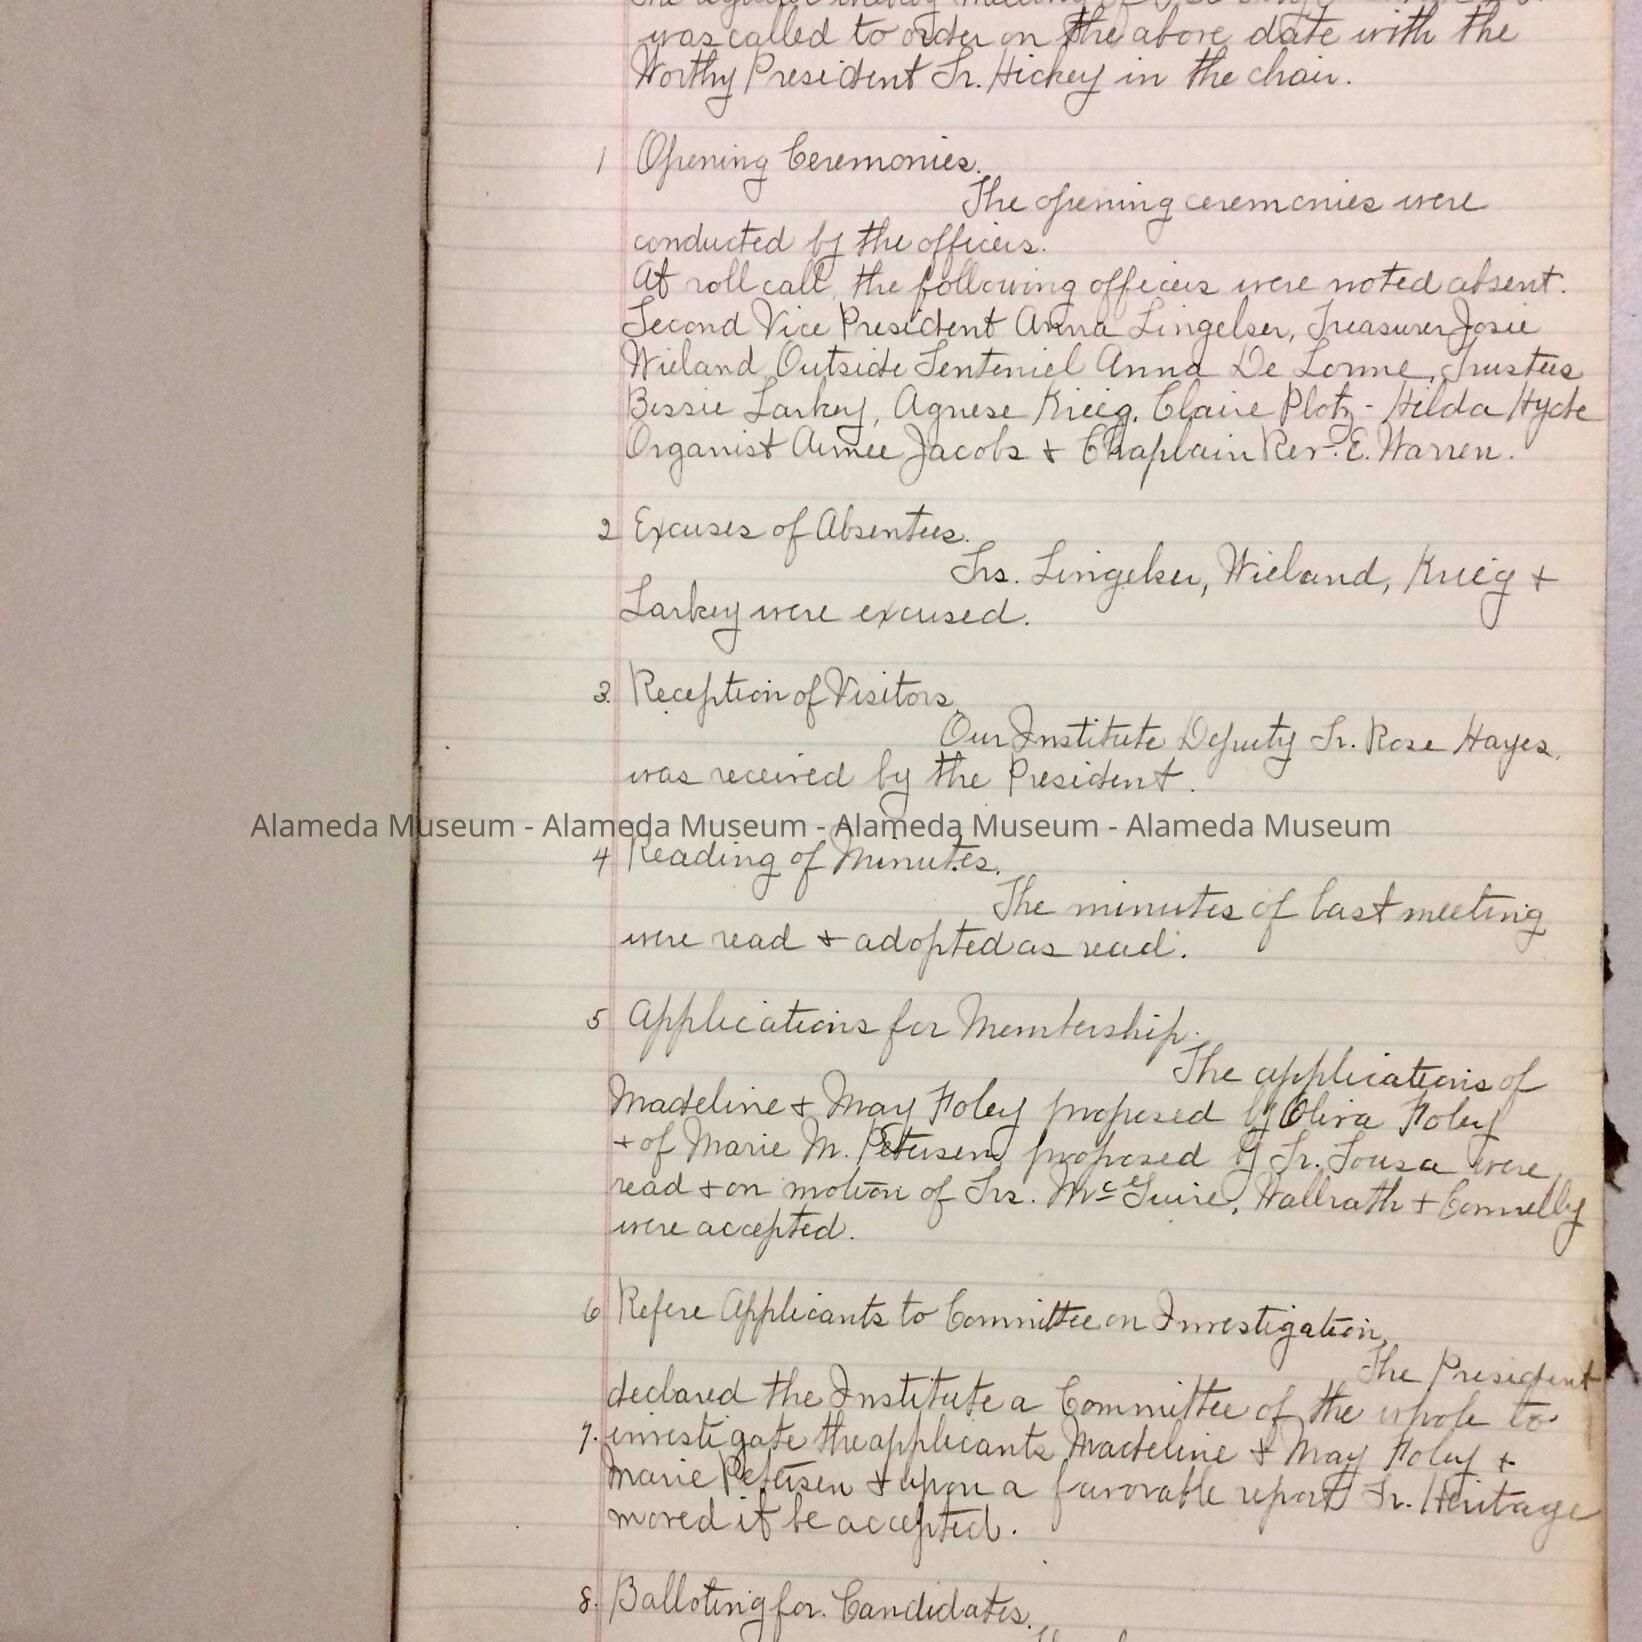 The regular meeting of
was called to order on the above date with the
Worthy President Sr. Hickey in the chair.
1 Opening Ceremonies.
The opening ceremonies were
conducted by the officers.
At roll call, the following officers were noted absent.
Second Vice President Anna Lingelser, Treasurer Josie
Wieland, Outside Senteniel Anna De Lorme, Trustees
Bessie Larkey, Agnese Krieg, Claire Plotz - Hilda Hyde
Organist Aimee Jacobs + Chaplain Rev. E. Warren.
2 Excuses of Absentees.
Srs. Lingelser, Wieland, Krieg +
Larkey were excused.
3. Reception of Visitors.
Our Institute Deputy Sr. Rose Hayes,
was received by the President.
Alameda Museum - Alameda Museum - Alameda Museum - Alameda Museum
4 Reading of Minutes.
The minutes of last meeting
were read + adopted as read.
5 Applications for Membership.
The applications of
Madeline + May Foley proposed by Oliva Foley
+ of Marie M. Petersen proposed by Sr. Sousa were
read + on motion of Srs. McGuire, Wallrath + Connelly
were accepted.
6 Refere Applicants to Committee on Investigation.
The President
declared the Institute a Committee of the whole to
7. investigate the applicants Madeline + May Foley +
Marie Petersen + upon a favorable report Sr. Heritage
moved it be accepted.
8. Balloting for Candidates.